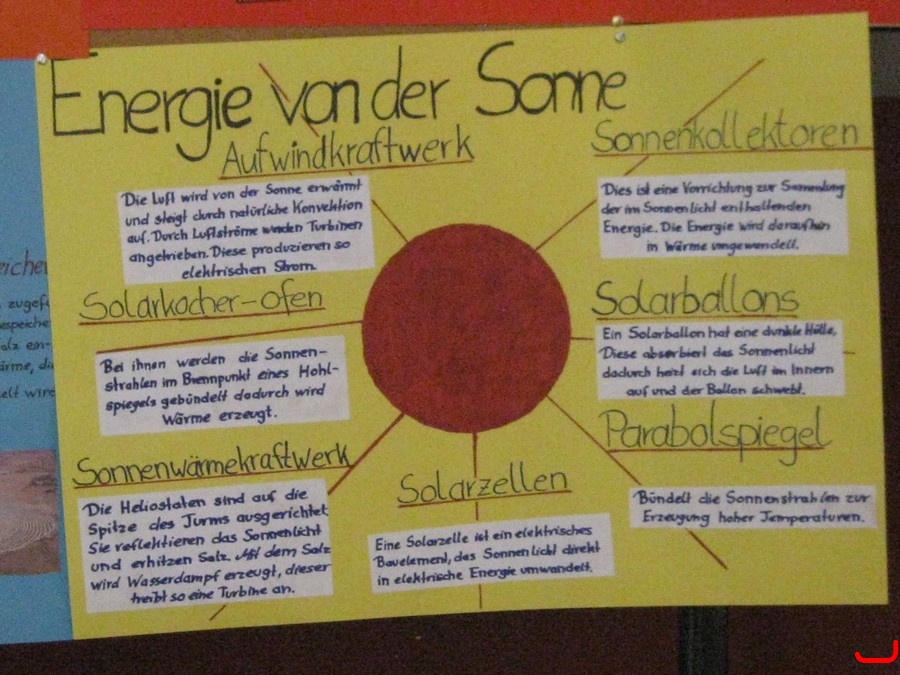 Energie von der Sonne
Aufwindkraftwerk
Die Luft wird von der Sonne erwärmt
und steigt durch natürliche Konvektion
auf. Durch Luftströme werden Turbinen
angetrieben. Diese produzieren so
elektrischen Strom.
Sonnenkollektoren
Dies ist eine Vorrichtung zur Sammlung
der im Sonnenlicht enthaltenden
Energie. Die Energie wird daraufhin
in Wärme umgewandelt.
Solarkocher-ofen
Bei ihnen werden die Sonnen-
strahlen im Brennpunkt eines Hohl-
spiegels gebündelt dadurch wird
Wärme erzeugt.
Solarballons
Ein Solarballon hat eine dunkle Hülle,
Diese absorbiert das Sonnenlicht
dadurch heizt sich die Luft im Innern
auf und der Ballon schwebt.
Sonnenwärmekraftwerk
Die Heliostaten sind auf die
Spitze des Turms ausgerichtet
Sie reflektieren das Sonnenlicht
und erhitzen Salz. Mit dem Salz
wird Wasserdampf erzeugt, dieser
treibt so eine Turbine an.
Solarzellen
Eine Solarzelle ist ein elektrisches
Bauelement, das Sonnenlicht direkt
in elektrische Energie umwandelt.
Parabolspiegel
Bündelt die Sonnenstrahlen zur
Erzeugung hoher Temperaturen.
zugef
espeiche
alz ein-
ärme, di
elt wird